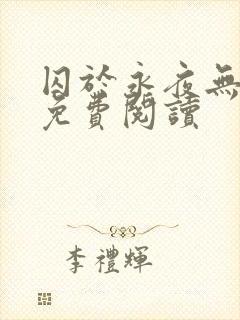 囚於永夜無
免費閱讀
李禮輝